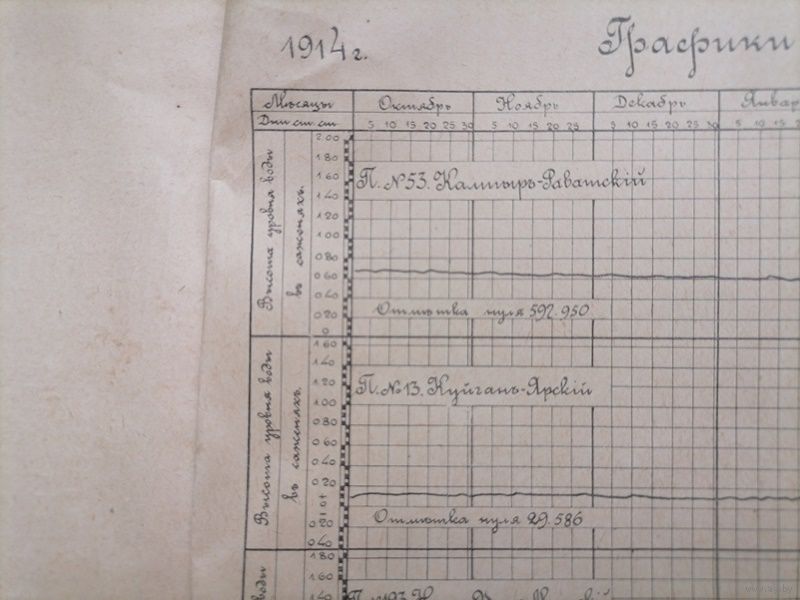 1914 г.
Графики
Мѣсяцы Октябрь Ноябрь Декабрь Январ
Дни ст. ст. 5 10 15 20 25 30 5 10 15 20 25 5 10 15 20 25 30 5 10 15
Высота уровня воды
въ саженяхъ.
2.00
1 80
1 60
1 40
1 20
1 00
0 80
0 60
0 40
0 20
0
П. №53. Кампыръ-Раватскій
Отмѣтка нуля 592.950
Высота уровня воды
въ саженяхъ.
1 60
1 40
1 20
1 00
0 80
0 60
0 40
0 20
0
0 20
0 40
П. №13. Куйганъ-Ярскій
Отмѣтка нуля 29.586
воды
1 80
1 60
1 40